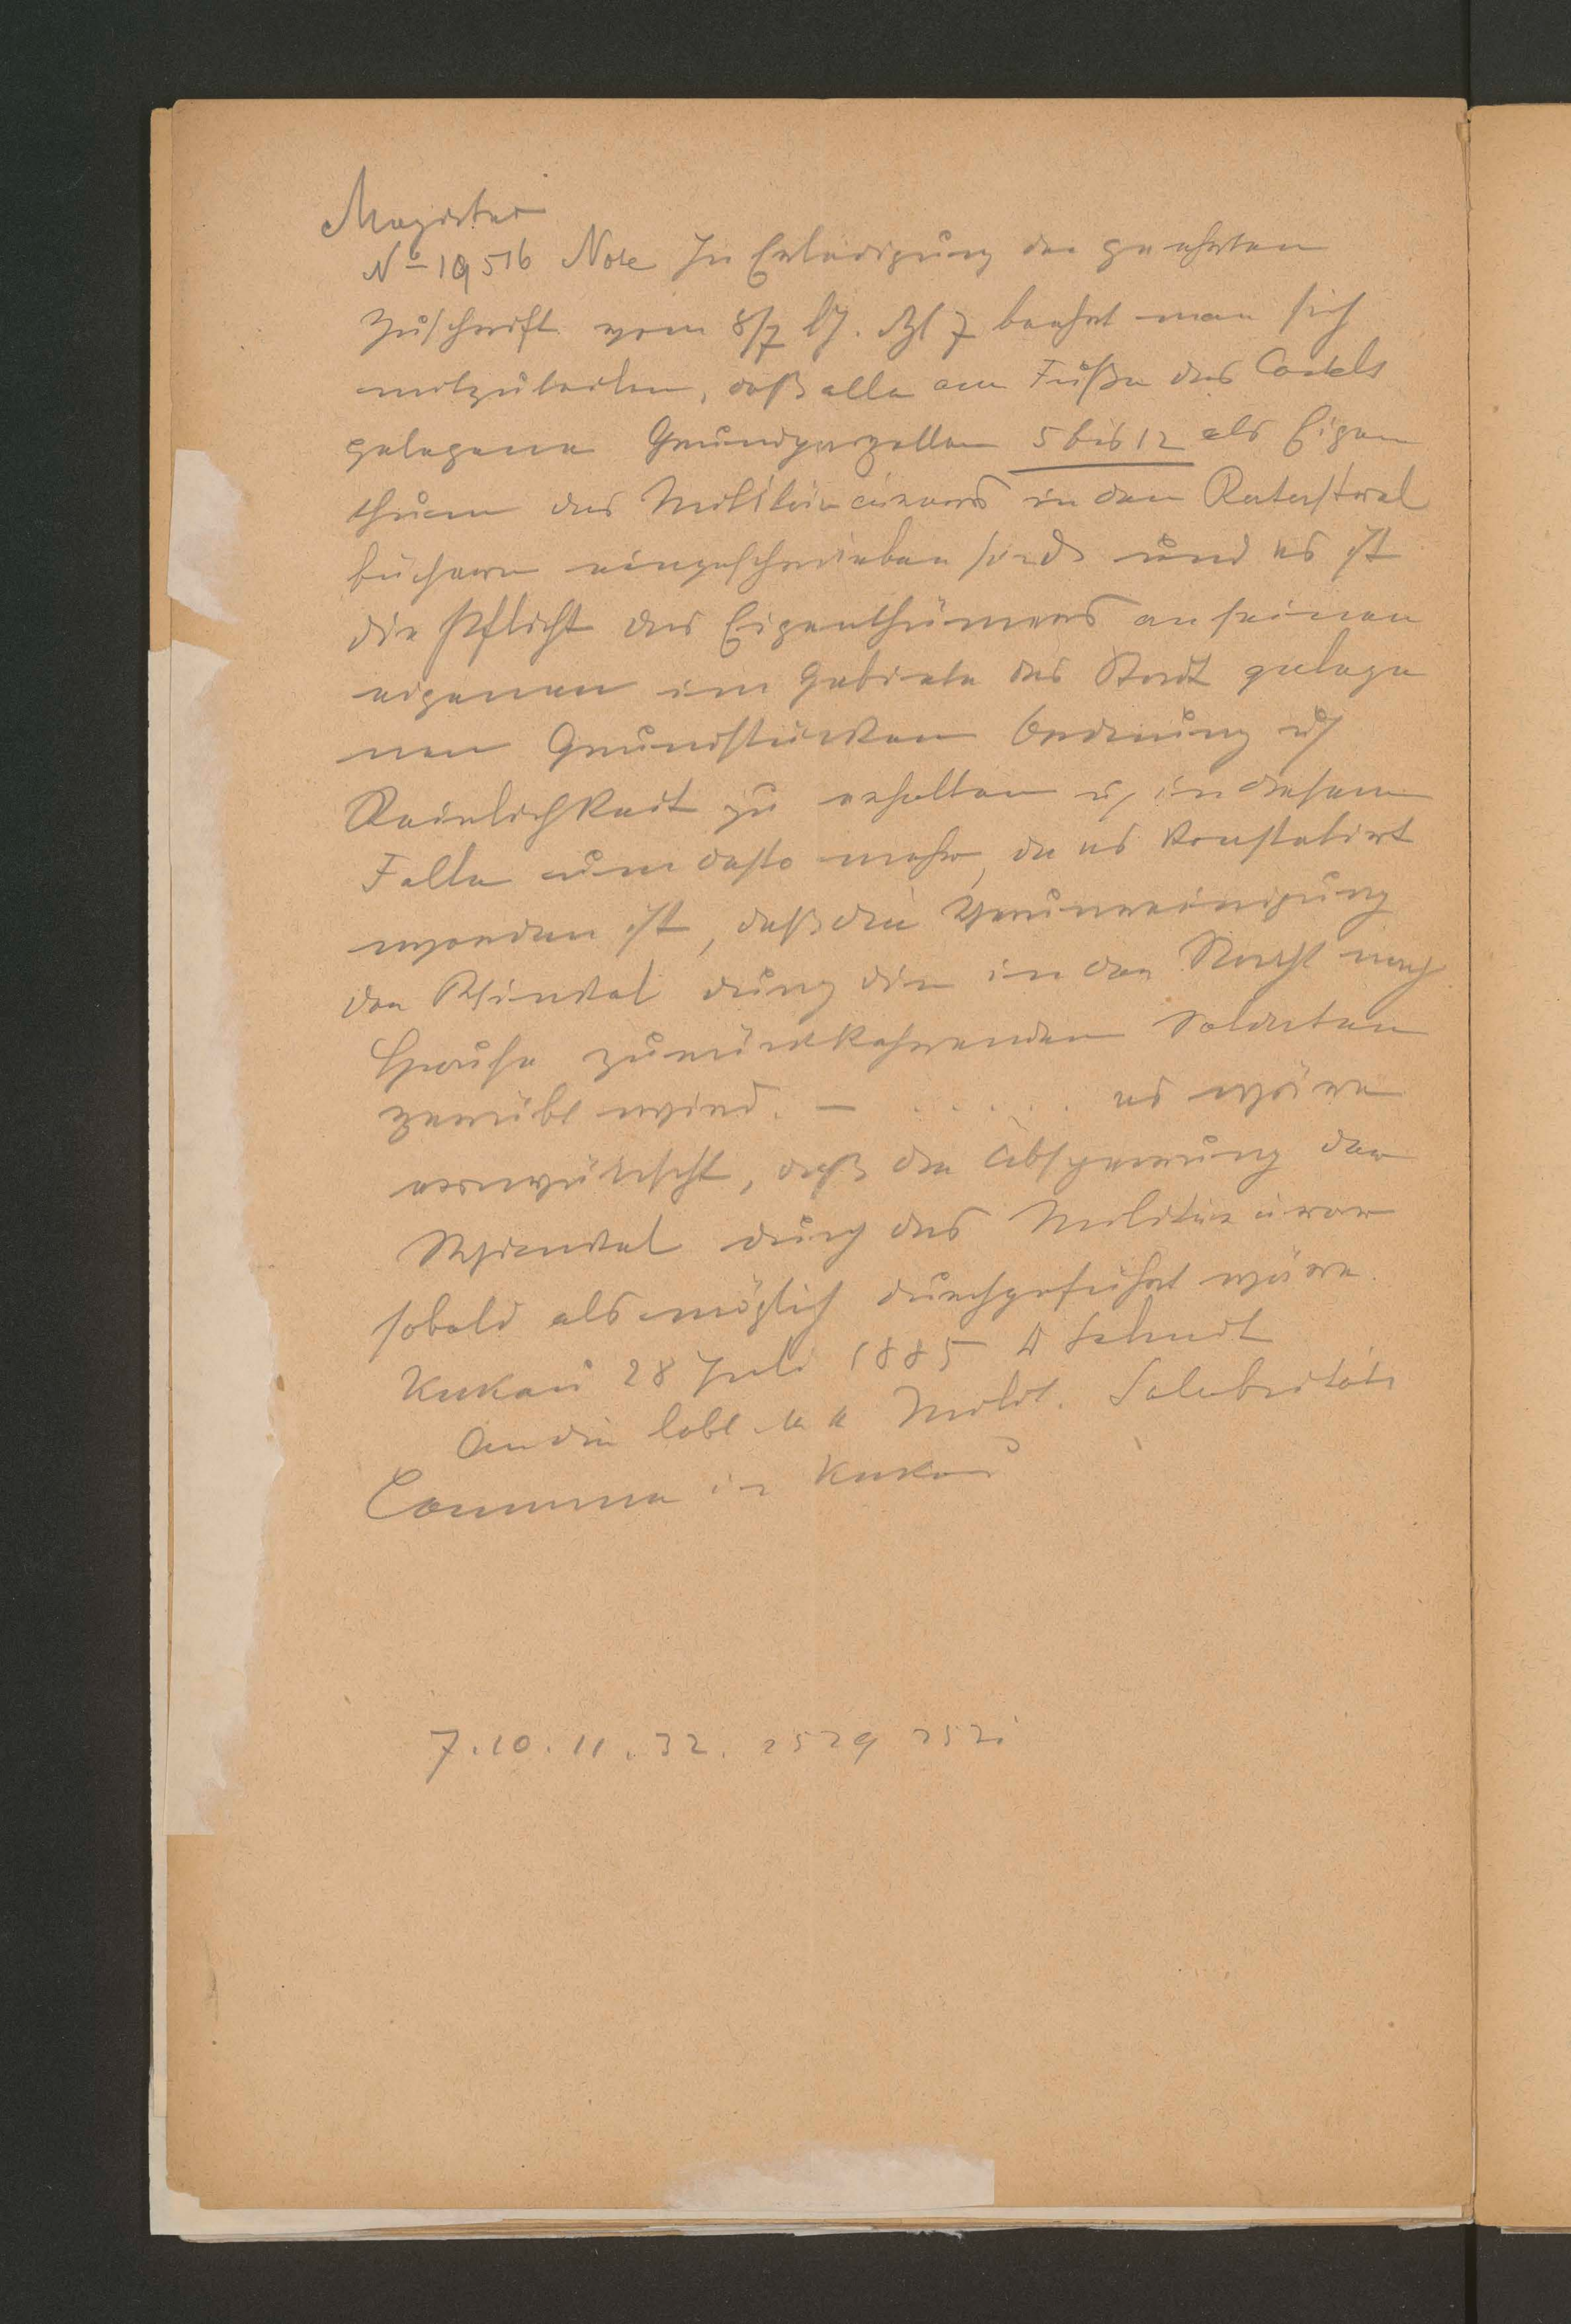 Magistrat
No 19516 Note In Erledigung der geehrten
Zuschrift vom 8/7 lJ. Zl 7 beehrt man sich
mitzutheilen, daß alle am Fuße des Castels
gelegene Grundparzellen 5 bis 12 als Eigen
thum des Militärärars in den Katastral
büchern eingeschrieben sind und es ist
die Pflicht des Eigenthümers an seinen
eigenen im Gebiete der Stadt gelege
nen Grundstücken Ordnung u
Reinlichkeit zu erhalten u in diesem
Falle um desto mehr, da es konstatirt
worden ist, daß die Verunreinigung
der Winkel durch die in der Nacht nach
Hause zurückkehrenden Soldaten
geübt wird. — . . . . . es wäre
erwünscht, daß die Absperrung der
Winkel durch das Militärärar
sobald als möglich durchgeführt wäre.
Krakau 28 Juli 1885
An die löbl. k k Milit. Salubritäts
Commission in Krakau
7. 10. 11. 32. 2529